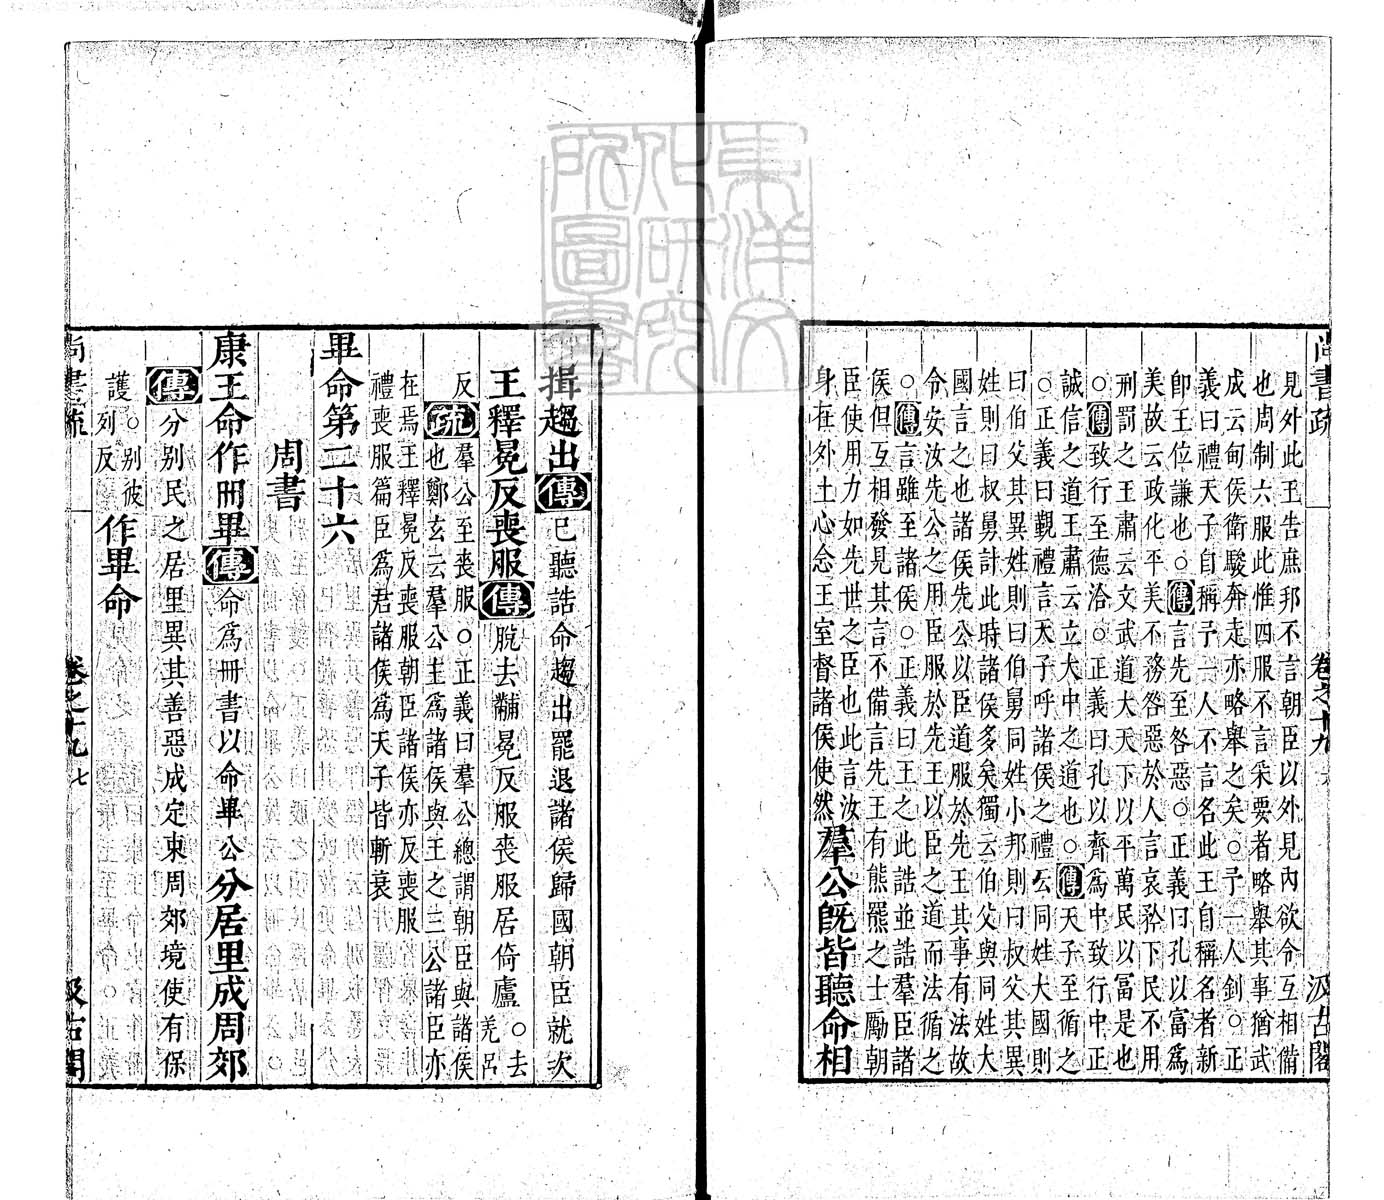 尚書疏 卷之十九 六 汲古閣
見外此王告庶邦不言朝臣以外見內欲令互相備
也周制六服此惟四服不言采要者略舉其事猶武
成云甸侯衛駿奔走亦略舉之矣○予一人釗○正
義曰禮天子自稱予一人不言名此王自稱名者新
卽王位謙也○傳言先至咎惡○正義曰孔以富爲
美故云政化平美不務咎惡於人言哀矜下民不用
刑罰之王肅云文武道大天下以平萬民以富是也
○傳致行至德洽○正義曰孔以齊爲中致行中正
誠信之道王肅云立大中之道也○傳天子至循之
○正義曰觀禮言天子呼諸侯之禮云同姓大國則
曰伯父其異姓則曰伯舅同姓小邦則曰叔父其異
姓則曰叔舅計此時諸侯多矣獨云伯父與同姓大
國言之也諸侯先公以臣道服於先王其事有法故
令安汝先公之用臣服於先王以臣之道而法循之
○傳言雖至諸侯○正義曰王之此誥並誥羣臣諸
侯但互相發見其言不備言先王有熊羆之士勵朝
臣使用力如先世之臣也此言汝
身在外土心念王室督諸侯使然羣公旣皆聽命相
揖趨出傳已聽誥命趨出罷退諸侯歸國朝臣就次
王釋冕反喪服傳脫去黼冕反服喪服居倚廬○去
羌呂
反疏羣公至喪服○正義曰羣公總謂朝臣與諸侯
也鄭玄云羣公主爲諸侯與王之三公諸臣亦
在焉王釋冕反喪服朝臣諸侯亦反喪服
禮喪服篇臣爲君諸侯爲天子皆斬衰
畢命第二十六
周書
康王命作冊畢傳命爲冊書以命畢公分居里成周郊
傳分別民之居里異其善惡成定東周郊境使有保
護○別彼
列反作畢命
尚書疏 卷之十九 七 汲古閣
東洋文化研究所圖書